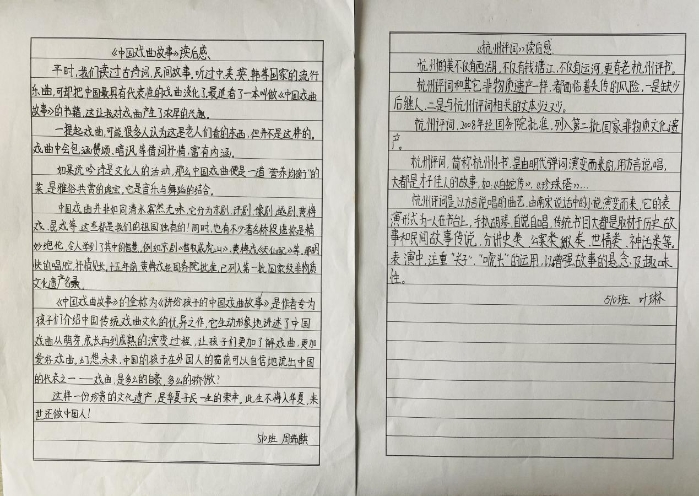 《中国戏曲故事》读后感、
平时,我们读过古诗词,民间故事,听过中美英韩等国家的流行
乐曲,可却把中国最具有代表准的戏曲淡化了最近看了一本叫做《中国戏曲
故事》的书籍,这让我对戏曲产生了浓厚的兴趣。
一提起戏曲,可能很多人认为这是老人们看的东西,但并不是这样的。
戏曲中会包涵赞颂、暗讽等借词抒情,富有内涵。
如果说吟诗是文人的活动,那么中国戏曲便是一道“营养均衡”的
菜,是雅俗共赏的瑰宝,它是音乐与舞蹈的结合。
中国戏曲并非如同清水索然无味,它分为京剧,评剧,豫剧,越剧,黄梅
戏,昆戏等,这些都是我们的祖国独创的!同时,也有不少著名桥段堪称是精
妙绝伦,令人学到了其中的智慧,例如京剧《智取威虎山》,黄梅戏《天仙配》等,那明
快的唱腔,抒情悠长,十五年前,黄梅戏经国务院批准,已列入第一批国家级非物质
文化遗产名录。
《中国戏曲故事》的全称为《讲给孩子的中国戏曲故事》是作者专为
孩子们介绍中国传统戏曲文化的优异之作,它生动形象地讲述了中国
戏曲从萌芽,成长再到成熟的演变过程,让孩子们更加了解戏曲,更加
爱好戏曲,幻想未来,中国的孩子在外国人的面前可以自信地说出中国
的代表之一——戏曲,是多么的自豪,多么的骄傲!
这样一份珍贵的文化遗产,是华夏子民一生的荣幸,此生不悔入华夏,来
世还做中国人!
510班 周瑞麒
《杭州评词》读后感
杭州的美不仅有西湖,不仅有钱塘江,不仅有运河,更有老杭州评书。
杭州评词和其它非物质遗产一样,都面临着失传的风险,一是缺少
后继人,二是与杭州评词相关的文本少之又少。
杭州评词,2008年经国务院批准,列入第二批国家非物质文化遗
产。
杭州评词,简称杭州小书,是由明代弹词演变而来的,用方言说唱,
大都是才子佳人的故事,如《白蛇传》、《珍珠塔》…
杭州评词是以方言说唱的曲艺,由南宋说话中的小说演变而来,它的表
演形式为一人在书台上,手执胡琴,自说自唱,传统书目大都是取材于历史故
事和民间故事传说,分讲史类、公案类、侠类、世情类、神话类等。
表演中,注重“关子”、“噱头”的运用,以增强故事的悬念及趣味
性。
510班 叶琳